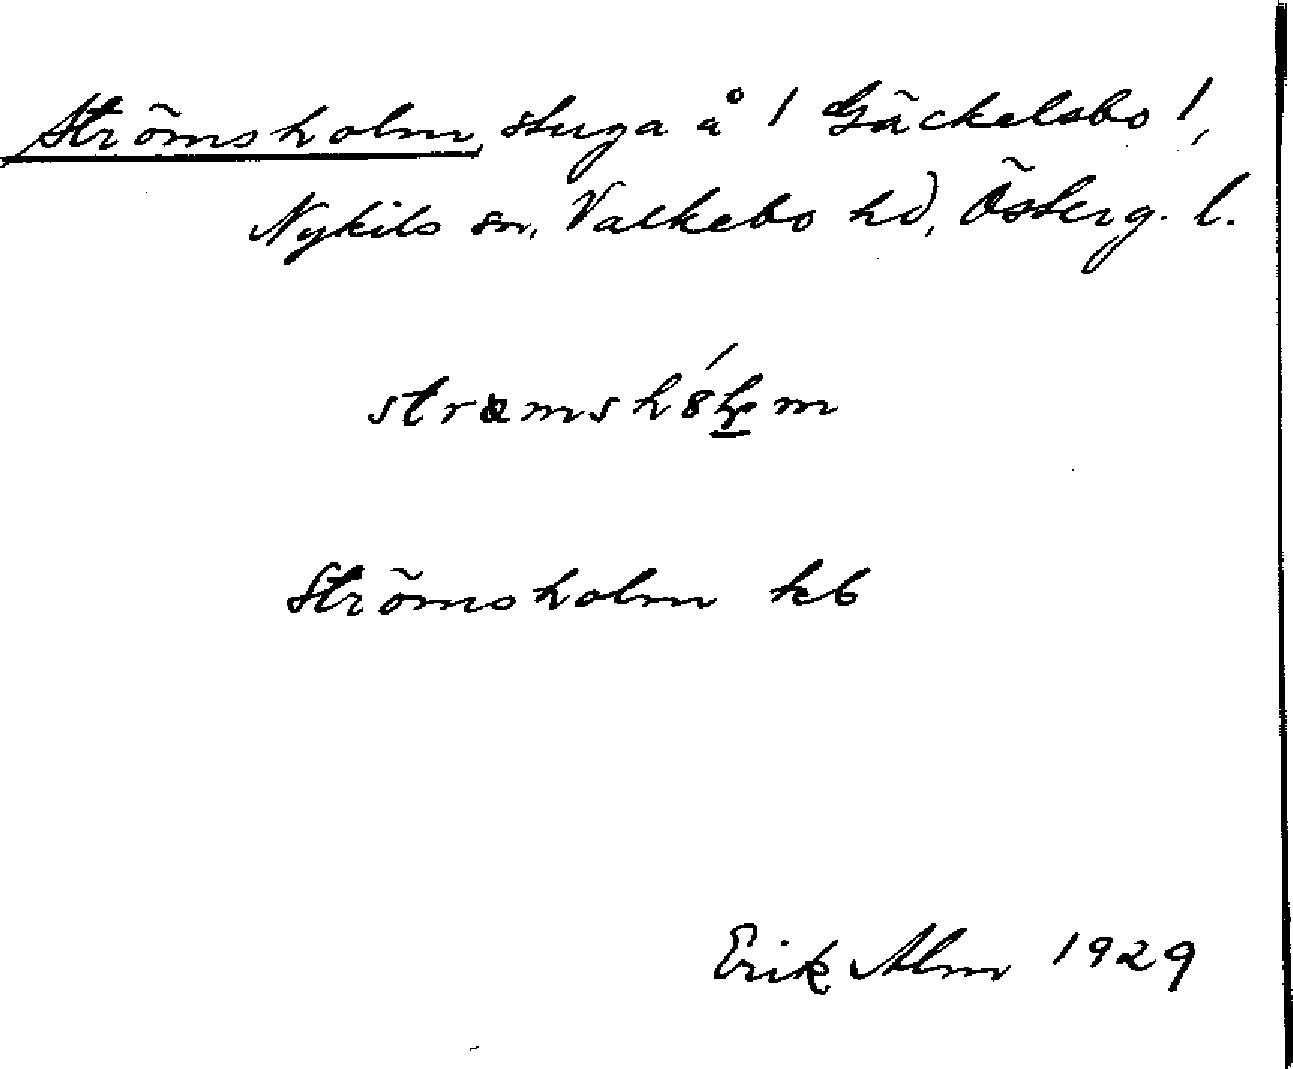 Strömsholm, stuga å / Gäckelsbo /,
Nykils sn, Valkebo hd, Österg. l.
Strömsholm kb
Erik Alm 1929